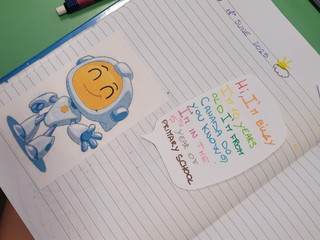 JUNE 2025
Hi, I'M BILLY
I'M YEARS
OLD, I'M FROM
CANADA DO
YOU KNOW?
I'M IN THE
YEAR OF
PRIMARY SCHOOL